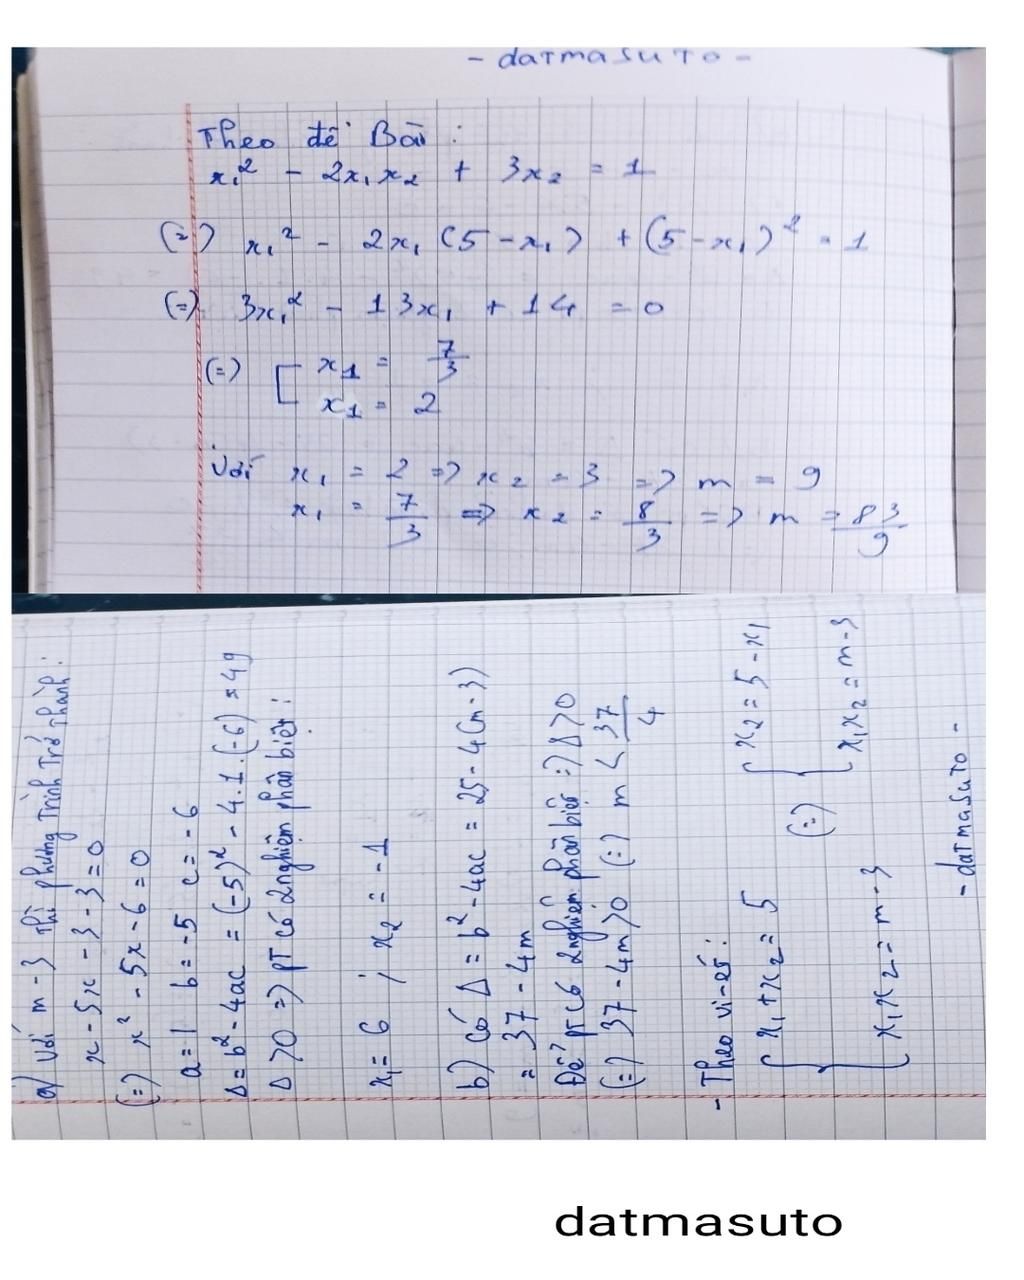 - datmasuto -
Theo đề Bài :
x₁² - 2x₁x₂ + 3x₂ = 1
(=) x₁² - 2x₁ (5 - x₁) + (5 - x₁)² = 1
(=) 3x₁² - 13x₁ + 14 = 0
(=) [ x1 = 7/3
x1 = 2
Với x₁ = 2 => x₂ = 3 => m = 9
x₁ = 7/3 => x₂ = 8/3 => m = 83/9
a) Với m - 3 thì phương trình trở thành:
x - 5x - 3 - 3 = 0
(=) x² - 5x - 6 = 0
a = 1 b = -5 c = -6
Δ = b² - 4ac = (-5)² - 4.1.(-6) = 49
Δ >0 => pT có 2 nghiệm phân biệt:
x₁ = 6 ; x₂ = -1
b) Có Δ = b² - 4ac = 25 - 4(m - 3)
= 37 - 4m
Để pT có 2 nghiệm phân biệt => Δ >0
(=) 37 - 4m >0 (=) m < 37/4
- Theo vi-ét:
{ x₁ + x₂ = 5 (=) { x₂ = 5 - x₁
x₁x₂ = m - 3 x₁x₂ = m - 3
- datmasuto -
datmasuto